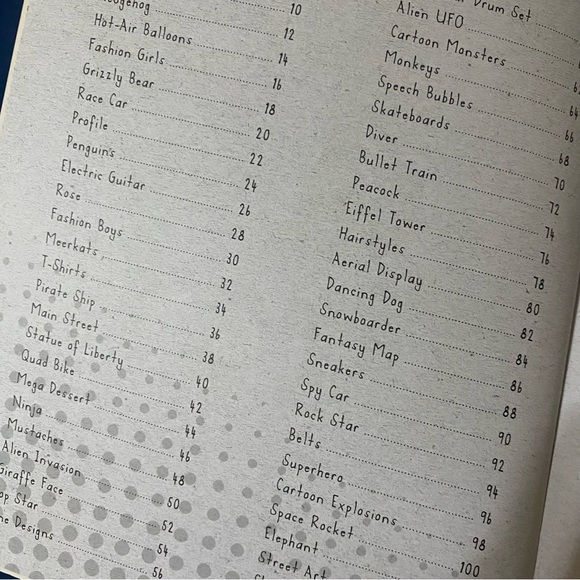 10
12
Hot-Air Balloons 14
Fashion Girls 16
Grizzly Bear 18
Race Car 20
Profile 22
Penguins 24
Electric Guitar 26
Rose 28
Fashion Boys 30
Meerkats 32
T-Shirts 34
Pirate Ship 36
Main Street 38
Statue of Liberty 40
Quad Bike 42
Mega Dessert 44
Ninja 46
Mustaches 48
Alien Invasion 50
Giraffe Face 52
Star 54
Designs 56
Drum Set
Alien UFO
Cartoon Monsters
Monkeys 64
Speech Bubbles 66
Skateboards 68
Diver 70
Bullet Train 72
Peacock 74
Eiffel Tower 76
Hairstyles 78
Aerial Display 80
Dancing Dog 82
Snowboarder 84
Fantasy Map 86
Sneakers 88
Spy Car 90
Rock Star 92
Belts 94
Superhero 96
Cartoon Explosions 98
Space Rocket 100
Elephant
Street Art